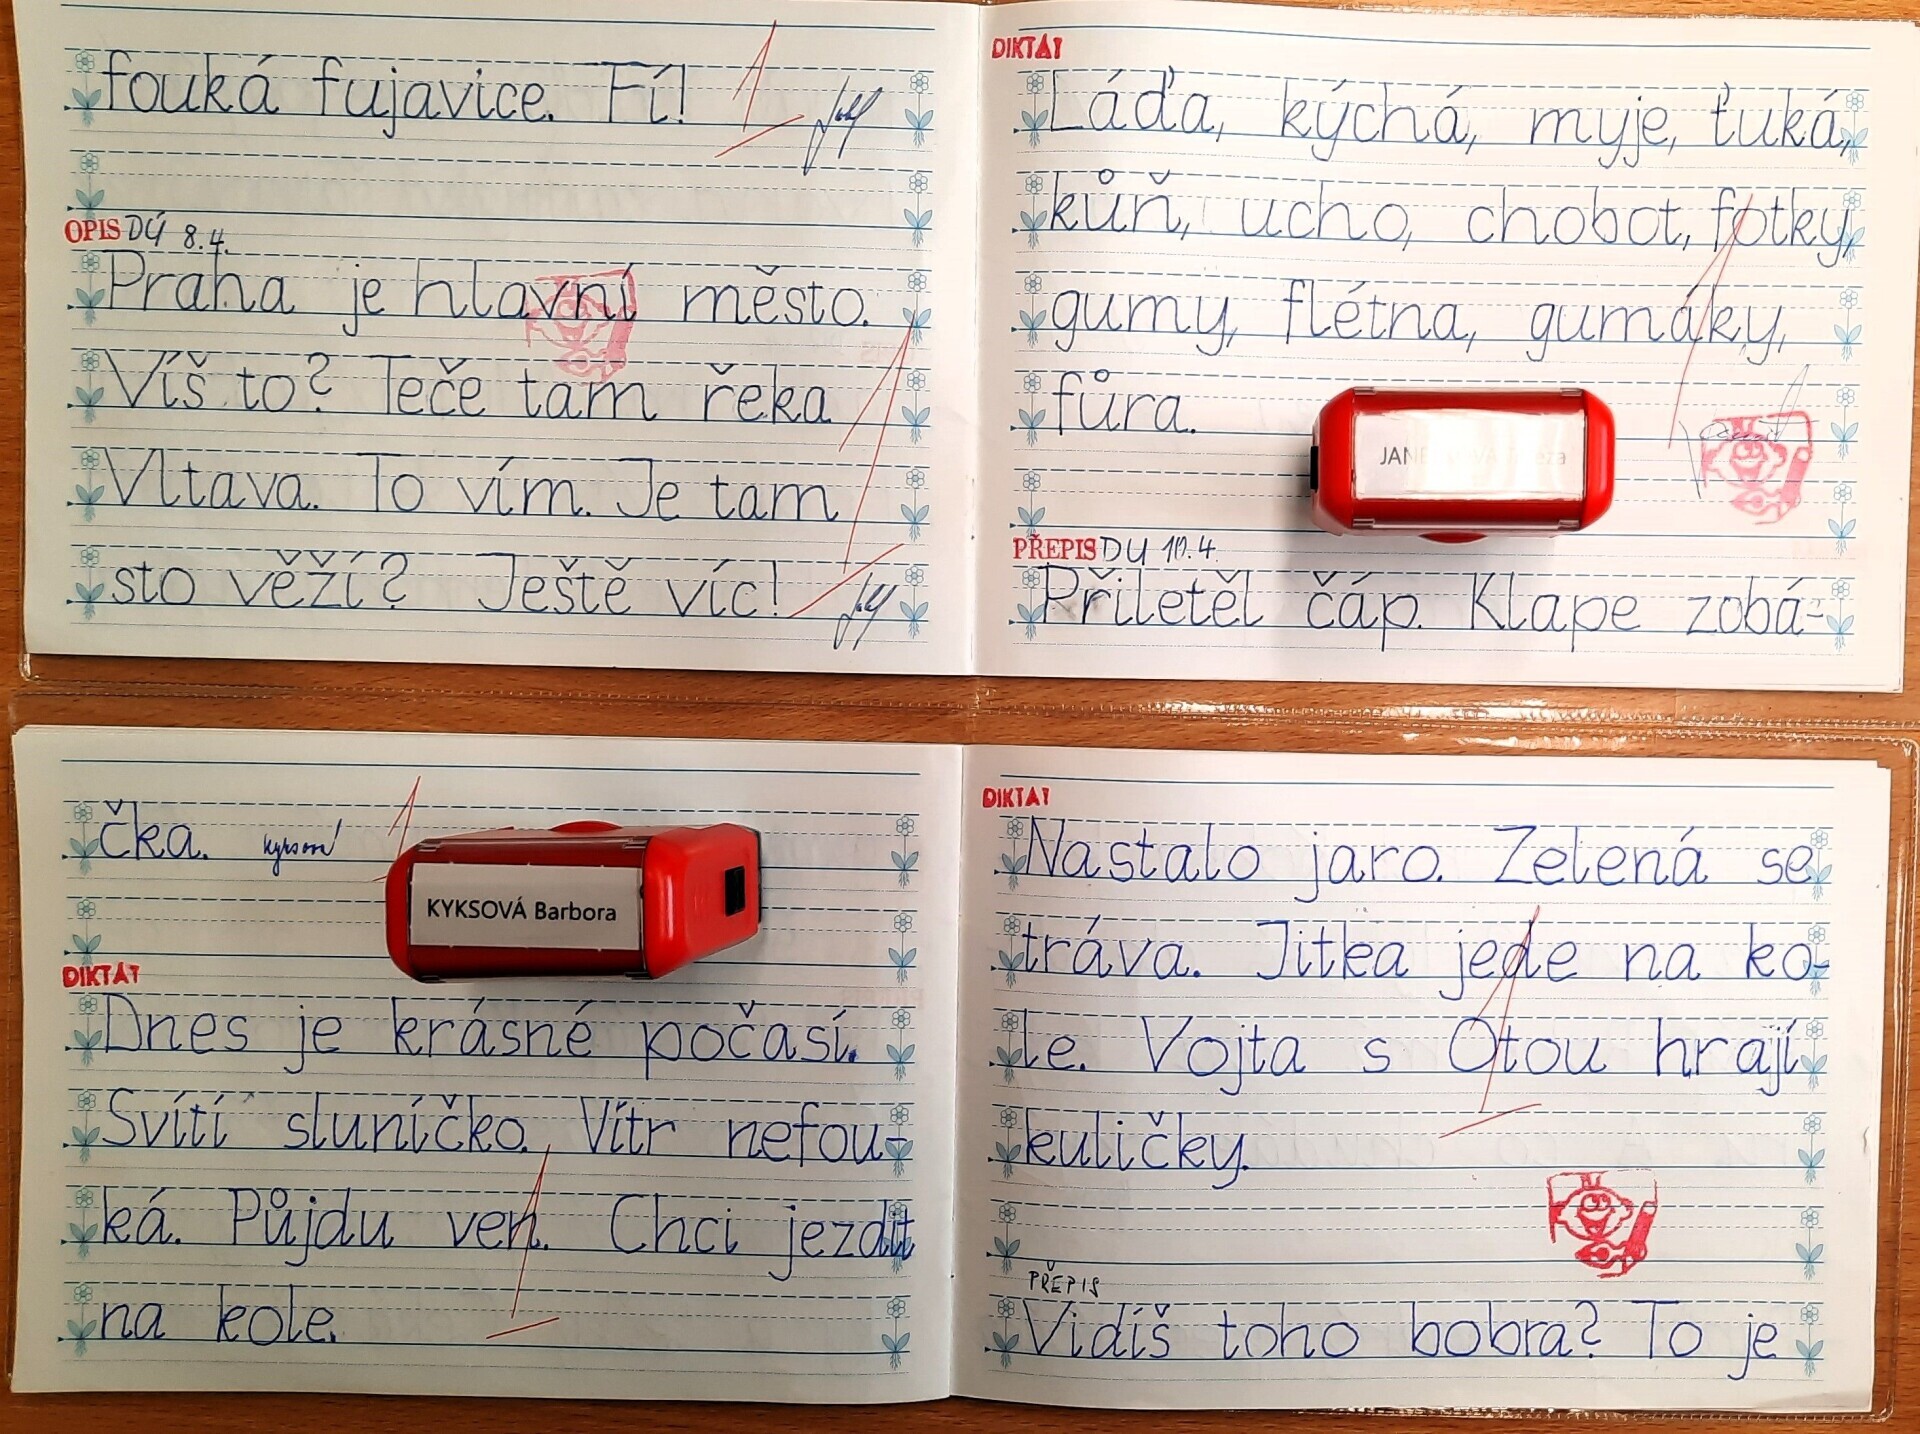 fouká fujavice. Fí!
OPIS DÚ 8.4.
Praha je hlavní město.
Víš to? Teče tam řeka
Vltava. To vím. Je tam
sto věží? Ještě víc!
DIKTÁT
Láďa, kýchá, myje, ťuká,
kůň, ucho, chobot, fotky,
gumy, flétna, gumáky,
fůra.
PŘEPIS DU 10.4.
Přiletěl čáp. Klape zobá-
čka.
KYKSOVÁ Barbora
DIKTÁT
Dnes je krásné počasí.
Svítí sluníčko. Vítr nefou-
ká. Půjdu ven. Chci jezdit
na kole.
DIKTÁT
Nastalo jaro. Zelená se
tráva. Jitka jede na ko-
le. Vojta s Otou hrají
kuličky.
PŘEPIS
Vidíš toho bobra? To je